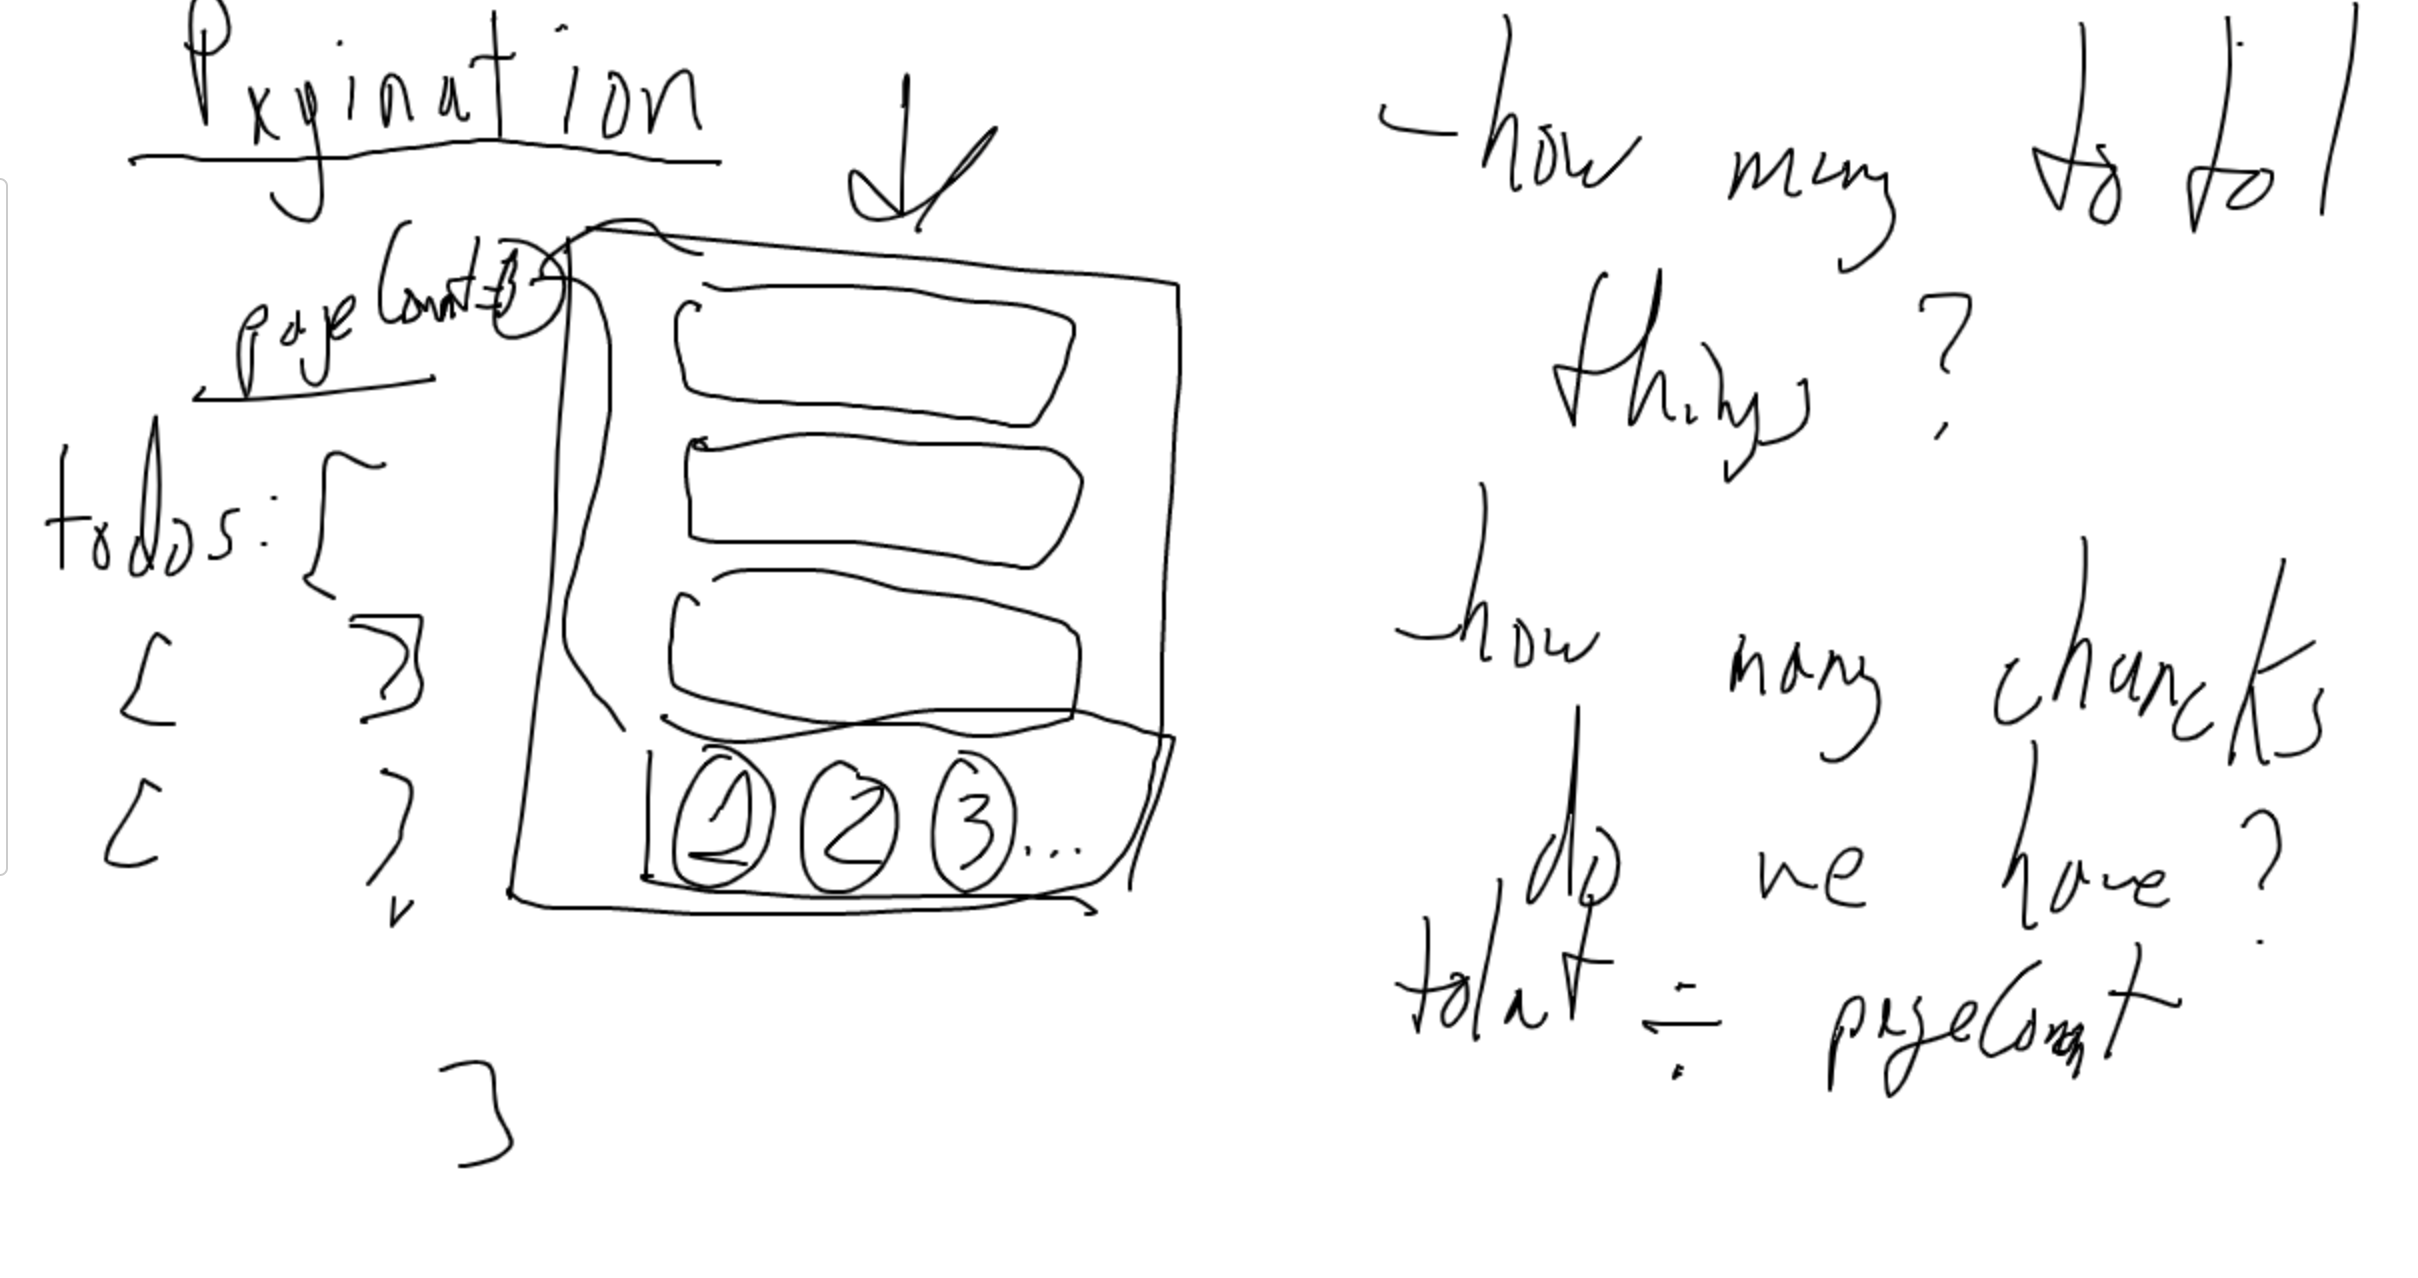 Pagination
pageCount=3
todos: [
{ }
{ },
]
1 2 3...
-how many total
things?
-how many chuncks
do we have?
total ÷ pageCount